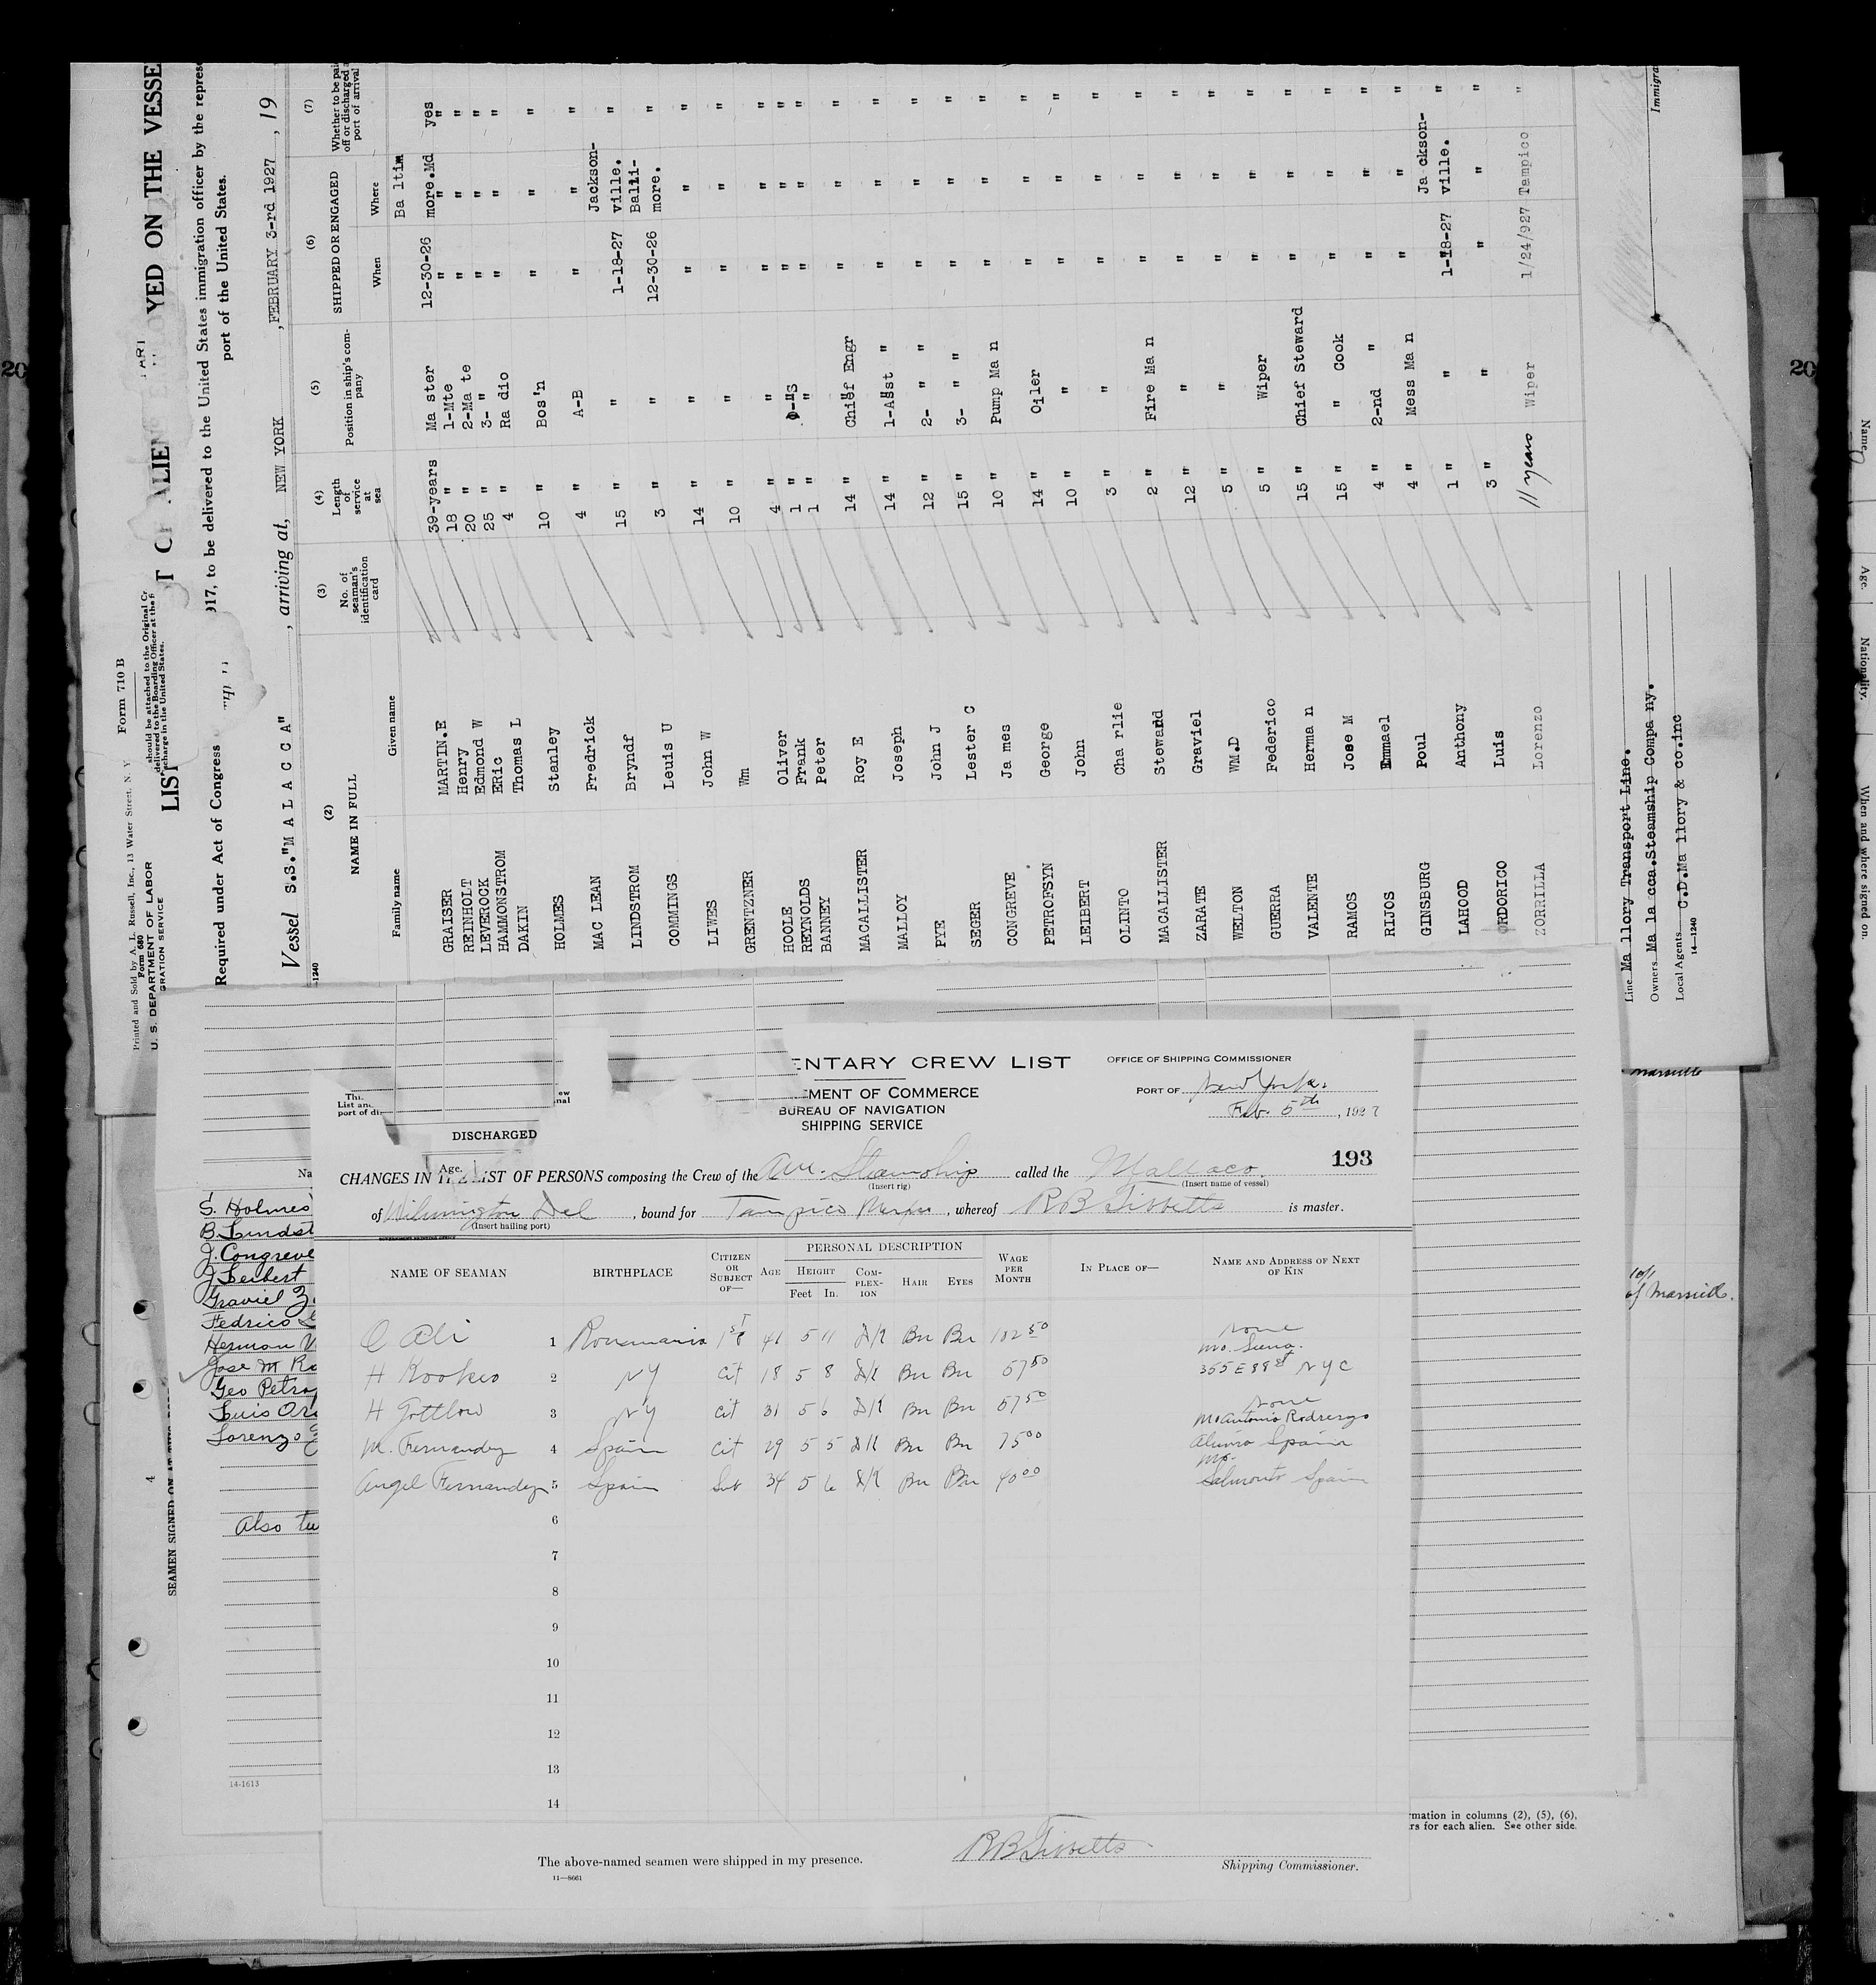 Form 710 B
Printed and Sold by A. L. Russell, Inc., 13 Water Street, N. Y
Form 680
U. S. DEPARTMENT OF LABOR
GRATION SERVICE
should be attached to the Original Cr
delivered to the Boarding Officer at the f
scharge in the United States.
LIST
YED ON THE VESSE
Required under Act of Congress
917, to be delivered to the United States immigration officer by the represe
port of the United States.
Vessel S.S."M A L A C C A" , arriving at, NEW YORK , FEBRUARY 3-rd 1927 , 19
-1240
(2) (3) (4) (5) (6) (7)
NAME IN FULL
Family name Given name
No. of seaman's identification card
Length of service at sea
Position in ship's company
SHIPPED OR ENGAGED
When Where
Whether to be paid off or discharged a port of arrival
Ba ltim
GRAISER MARTIN.E 39-years Ma ster 12-30-26 more.Md yes
REINHOLT Henry 18 " 1-Mte " " "
LEVEROOK Edmond W 20 " 2-Ma te " " "
HAMMONSTROM Eric 25 " 3- " " " "
DAKIN Thomas L 4 " Ra dio " " "
HOLMES Stanley 10 " Bos'n " " "
MAC LEAN Fredrick 4 " A-B " " "
Jackson-
LINDSTROM Bryndf 15 " " 1-18-27 ville. "
Balti-
COMMINGS Leuis U 3 " " 12-30-26 more. "
LIWES John W 14 " " " " "
GRENTZNER Wm 10 " " " " "
HOOLE Oliver 4 " " " " "
REYNOLDS Frank 1 " O-S " " "
BANNEY Peter 1 " " " " "
MACALLISTER Roy E 14 " Chief Engr " " "
MALLOY Joseph 14 " 1-Asst " " " "
PYE John J 12 " 2- " " " " "
SEGER Lester C 15 " 3- " " " " "
CONGREVE Ja mes 10 " Pump Ma n " " "
PETROFSYN George 14 " Oiler " " "
LEIBERT John 10 " " " " "
OLINTO Cha rlie 3 " " " " "
MAGALLISTER Steward 2 " Fire Ma n " " "
ZARATE Graviel 12 " " " " "
WELTON WM.D 5 " " " " "
GUERRA Federico 5 " Wiper " " "
VALENTE Herma n 15 " Chief Steward " " "
RAMOS Jose M 15 " " Cook " " "
RIJOS Emmael 4 " 2-nd " " " "
GINSBURG Poul 4 " Mess Ma n " " "
Ja ckson-
LAHOOD Anthony 1 " " 1-18-27 ville. "
ORDORICO Luis 3 " " " " "
ZORRILLA Lorenzo 11 years Wiper 1/24/927 Tampico "
Line Ma llory Transport Line.
Owners Ma la cca.Steamship Compa ny.
Local Agents C.D.Ma llory & co.inc
14-1240
Immigra
ENTARY CREW LIST
MENT OF COMMERCE
BUREAU OF NAVIGATION
SHIPPING SERVICE
OFFICE OF SHIPPING COMMISSIONER
PORT OF New York
Feb. 5th , 1927
193
List and
port of di
DISCHARGED
Age.
CHANGES IN THE LIST OF PERSONS composing the Crew of the Am. Steamship called the Mallaco
(Insert rig) (Insert name of vessel)
of Wilmington Del , bound for Tampico Mexico , whereof R B Tibbetts is master.
(Insert hailing port)
NAME OF SEAMAN BIRTHPLACE CITIZEN OR SUBJECT OF— AGE PERSONAL DESCRIPTION HEIGHT Feet In. COMPLEXION HAIR EYES WAGE PER MONTH IN PLACE OF— NAME AND ADDRESS OF NEXT OF KIN
O Ali 1 Roumania 1st 41 5 11 DK Bn Bn 102 50 none
H Kookes 2 NY cit 18 5 8 DK Bn Bn 57 50 355 E 88 St NYC
H Gottlow 3 NY cit 31 5 6 DK Bn Bn 57 50 none
M. Fernandez 4 Spain cit 29 5 5 DK Bn Bn 75 00 Mo Antonio Rodrengo
Spain
Angel Fernandez 5 Spain Sub 34 5 6 DK Bn Bn 40 00 Mo.
Salmonte Spain
6
7
8
9
10
11
12
13
14
The above-named seamen were shipped in my presence.
11—8661
R B Tibbetts
Shipping Commissioner.
S. Holmes
B. Lindst
J. Congreve
J. Leibert
Graviel Z
Fedrico
Herman V
Jose M Ra
Geo Petro
Luis Ord
Lorenzo
Also tw
14-1613
4
SEAMEN SIGNED ON
marseille
of Marseille.
rmation in columns (2), (5), (6),
rs for each alien. See other side.
20
20
Name.
Age.
Nationality.
When and where signed on.